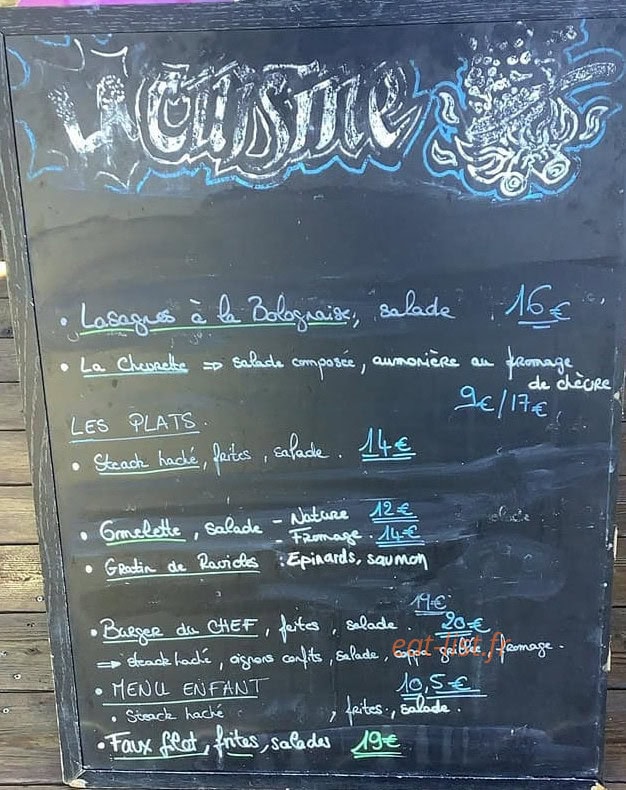 LA CUISINE
• Lasagnes à la Bolognaise, salade 16€
• La Chevrette ⇒ salade composée, aumonière au fromage
de chèvre
9€/17€
LES PLATS.
• Steack haché, frites, salade. 14€
• Omelette, salade - Nature 12€
- Fromage. 14€
• Gratin de Ravioles : Epinards, saumon
19€
• Burger du CHEF, frites, salade 20€
⇒ steack haché, oignons confits, salade, coppa grillée, fromage.
eat-list.fr
• MENU ENFANT 10,5€
• Steack haché , frites, salade.
• Faux filet, frites, salades 19€